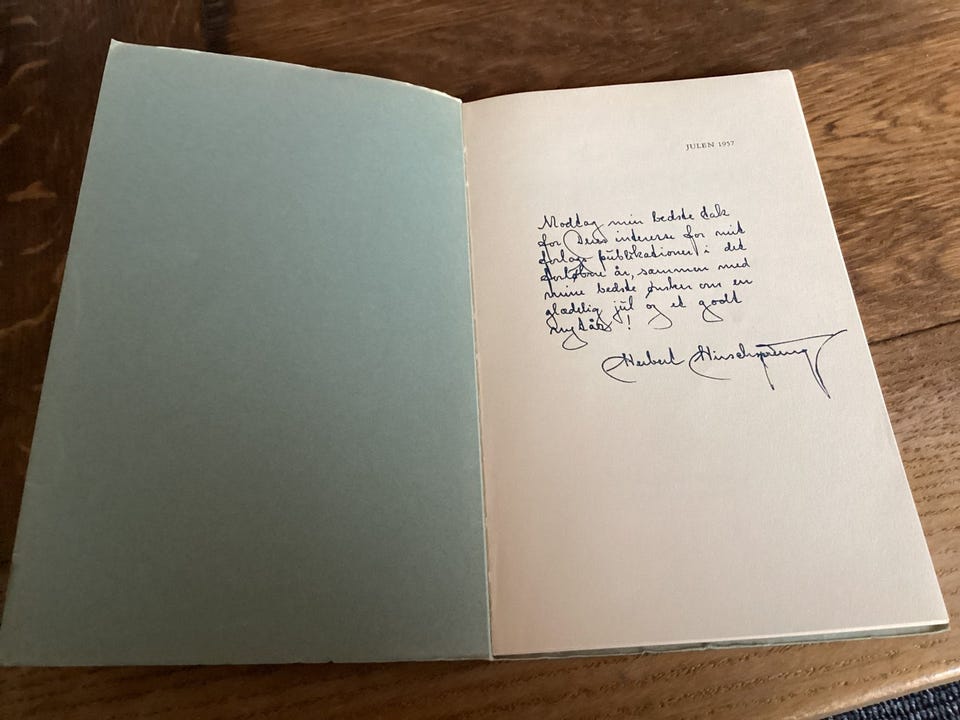 JULEN 1957
Modtag min bedste tak
for Deres interesse for mit
forlags publikationer i det
forløbne år, sammen med
mine bedste ønsker om en
glædelig jul og et godt
nytår!
Herbert Hirschsprung